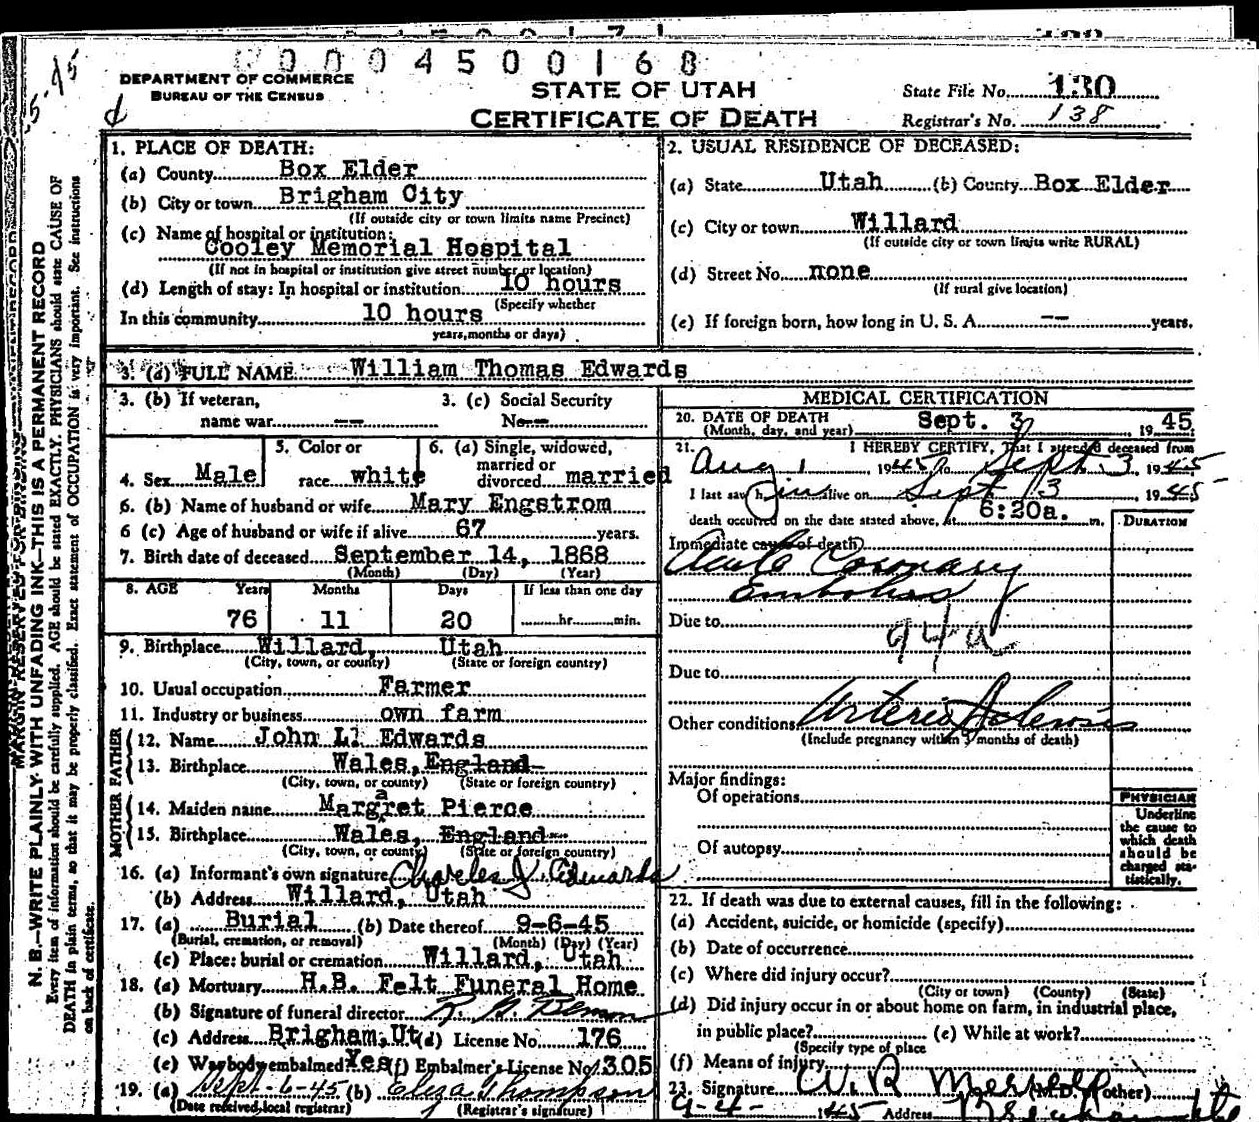 0004500168
DEPARTMENT OF COMMERCE
BUREAU OF THE CENSUS
STATE OF UTAH
CERTIFICATE OF DEATH
State File No. 130
Registrar's No. 138
MARGIN RESERVED FOR BINDING
N. B.—WRITE PLAINLY WITH UNFADING INK—THIS IS A PERMANENT RECORD
Every item of information should be carefully supplied. AGE should be stated EXACTLY. PHYSICIANS should state CAUSE OF
DEATH in plain terms, so that it may be properly classified. Exact statement of OCCUPATION is very important. See instructions
on back of certificate.
1. PLACE OF DEATH:
(a) County Box Elder
(b) City or town Brigham City
(If outside city or town limits name Precinct)
(c) Name of hospital or institution:
Cooley Memorial Hospital
(If not in hospital or institution give street number or location)
(d) Length of stay: In hospital or institution 10 hours
(Specify whether
In this community 10 hours
years, months or days)
2. USUAL RESIDENCE OF DECEASED:
(a) State Utah (b) County Box Elder
(c) City or town Willard
(If outside city or town limits write RURAL)
(d) Street No. none
(If rural give location)
(e) If foreign born, how long in U. S. A. -- years.
3. (a) FULL NAME William Thomas Edwards
3. (b) If veteran,
name war --
3. (c) Social Security
No. --
4. Sex Male
5. Color or
race white
6. (a) Single, widowed,
married or
divorced married
6. (b) Name of husband or wife Mary Engstrom
6 (c) Age of husband or wife if alive 67 years.
7. Birth date of deceased September 14, 1868
(Month) (Day) (Year)
8. AGE Years Months Days If less than one day
76 11 20 hr. min.
9. Birthplace Willard, Utah
(City, town, or county) (State or foreign country)
10. Usual occupation Farmer
11. Industry or business own farm
FATHER
12. Name John L. Edwards
13. Birthplace Wales, England
(City, town, or county) (State or foreign country)
MOTHER
14. Maiden name Margaret Pierce
15. Birthplace Wales, England
(City, town, or county) (State or foreign country)
16. (a) Informant's own signature Charles J. Edwards
(b) Address Willard, Utah
17. (a) Burial (b) Date thereof 9-6-45
(Burial, cremation, or removal) (Month) (Day) (Year)
(c) Place: burial or cremation Willard, Utah
18. (a) Mortuary H.B. Felt Funeral Home
(b) Signature of funeral director
(c) Address Brigham, Ut (d) License No. 176
(e) Was body embalmed? Yes (f) Embalmer's License No. 305
19. (a) Sept-6-45 (b) Eliza Thompson
(Date received local registrar) (Registrar's signature)
MEDICAL CERTIFICATION
20. DATE OF DEATH Sept. 3, 19 45
(Month, day, and year)
21. I HEREBY CERTIFY, That I attended deceased from
Aug 1 1945 to Sept 3 1945
I last saw him alive on Sept 3, 1945
death occurred on the date stated above, at 6:20a. m.
DURATION
Immediate cause of death
Acute Coronary
Embolus
Due to
94a
Due to
Other conditions Arterio Sclerosis
(Include pregnancy within 3 months of death)
Major findings:
Of operations
Of autopsy
PHYSICIAN
Underline
the cause to
which death
should be
charged sta-
tistically.
22. If death was due to external causes, fill in the following:
(a) Accident, suicide, or homicide (specify)
(b) Date of occurrence
(c) Where did injury occur?
(City or town) (County) (State)
(d) Did injury occur in or about home on farm, in industrial place,
in public place? (e) While at work?
(Specify type of place
(f) Means of injury
23. Signature W R (M.D. or other)
9-4- 1945 Address